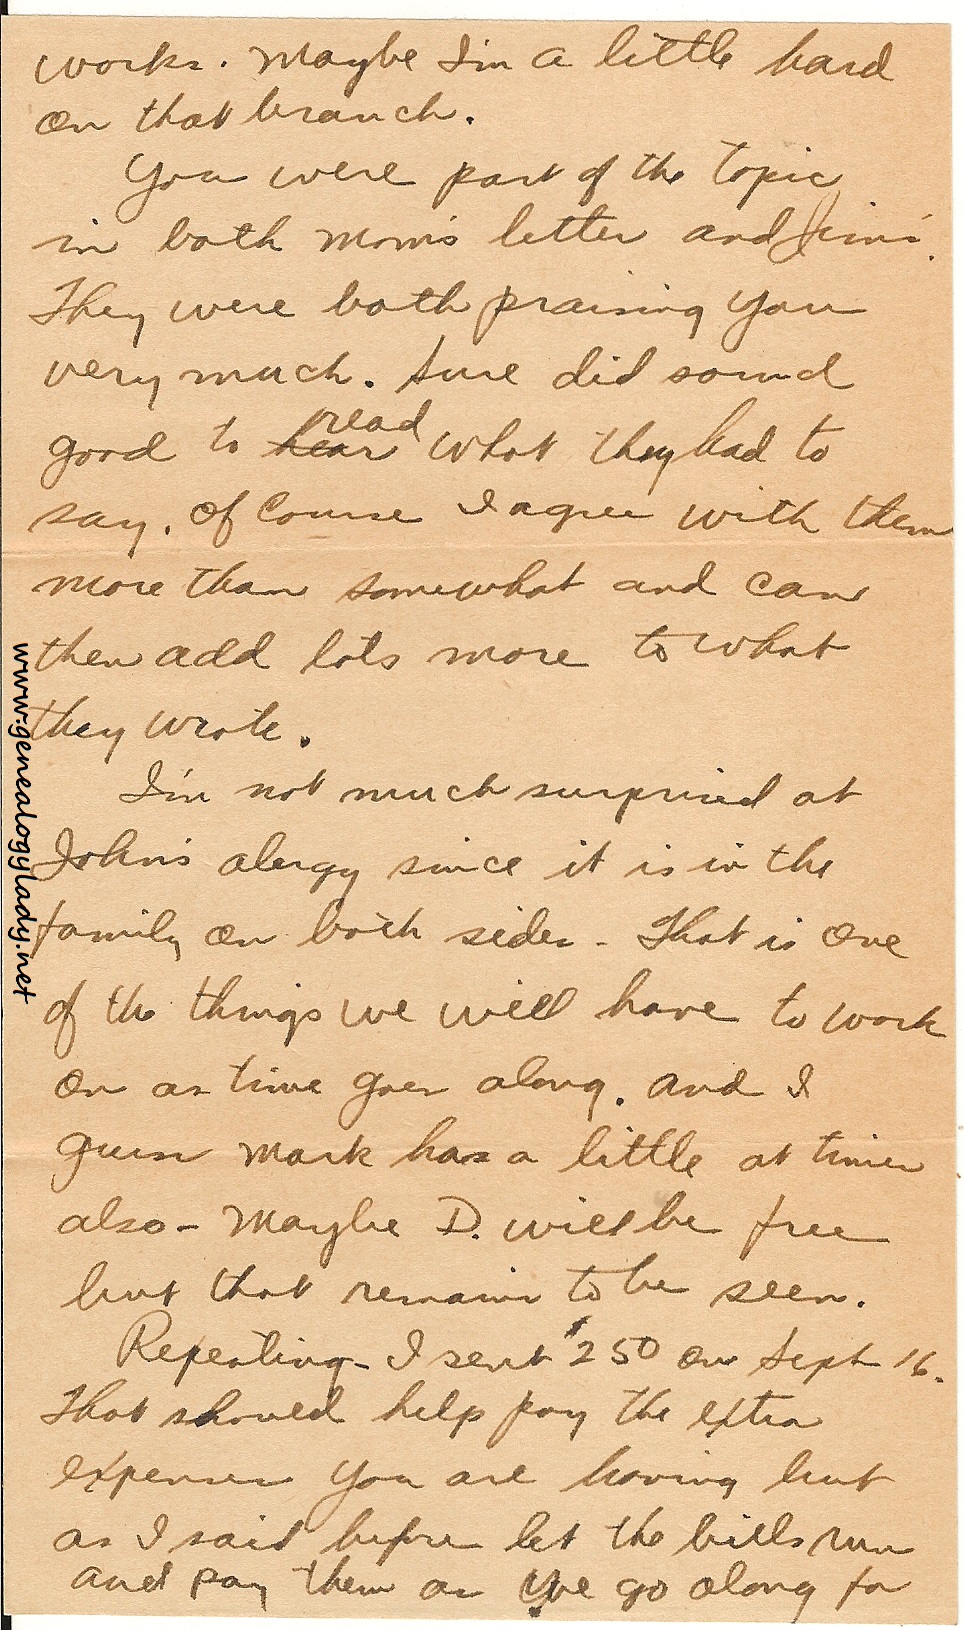 works. Maybe I'm a little hard
on that branch.
You were part of the topic
in both Mom's letter and Jim's.
They were both praising you
very much. Sure did sound
good to hear read what they had to
say. Of course I agree with them
more than somewhat and can
then add lots more to what
they wrote.
I'm not much surprised at
John's alergy since it is in the
family on both sides. That is one
of the things we will have to work
on as time goes along. And I
guess Mark has a little at times
also - Maybe D. will be free
but that remains to be seen.
Repeating - I sent $250 on Sept 16.
That should help pay the extra
expenses you are having but
as I said before let the bills run
and pay them as we go along for
www.genealogylady.net